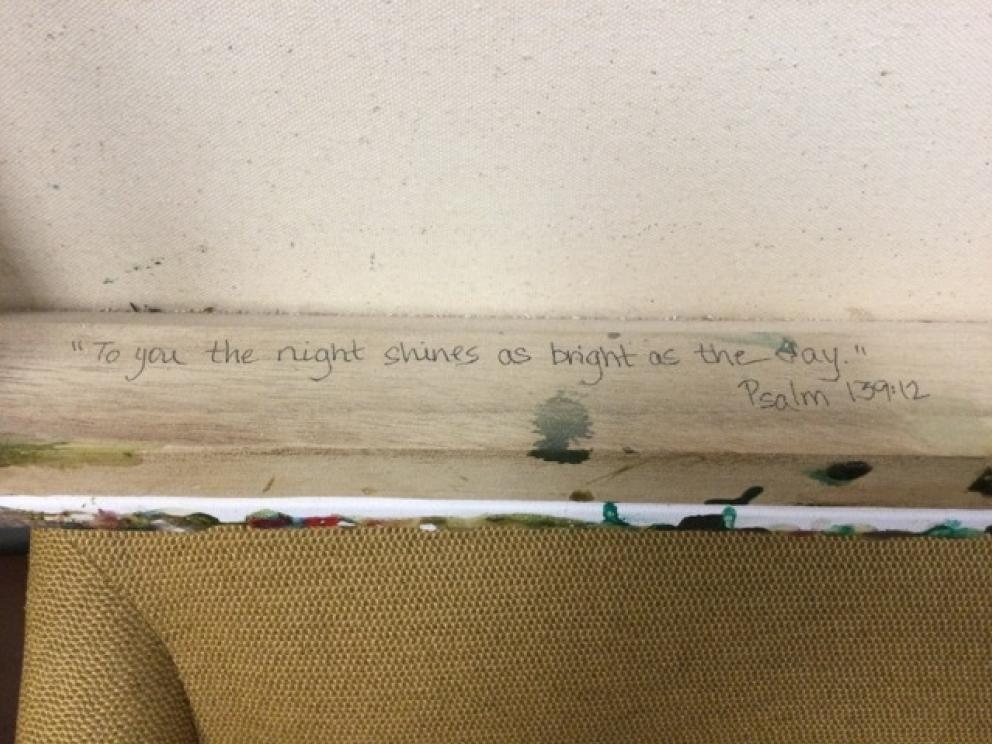 "To you the night shines as bright as the day."
Psalm 139:12